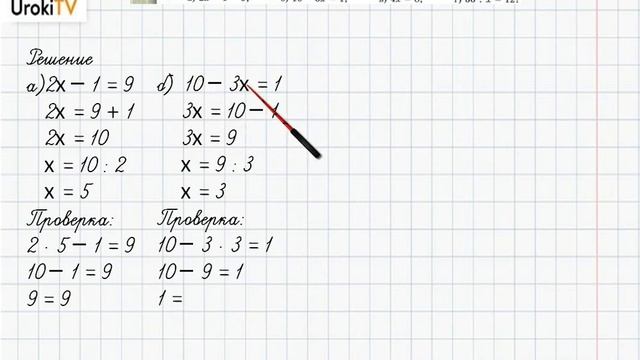 UrokiTV
Решение
а) 2x − 1 = 9
2x = 9 + 1
2x = 10
x = 10 : 2
x = 5
Проверка:
2 · 5 − 1 = 9
10 − 1 = 9
9 = 9
б) 10 − 3x = 1
3x = 10 − 1
3x = 9
x = 9 : 3
x = 3
Проверка:
10 − 3 · 3 = 1
10 − 9 = 1
1 =